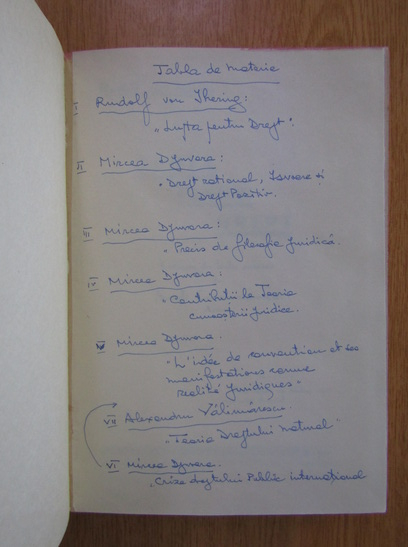 Tabla de materie
I Rudolf von Ihering:
„Lupta pentru Drept".
II Mircea Djuvara:
• Drept rational, Isvoare și
Drept Pozitiv.
III Mircea Djuvara:
• Precis de filosofie juridică.
IV Mircea Djuvara:
„Contributii la Teoria
cunoașterii juridice.
V Mircea Djuvara.
"L'idée de convention et ses
manifestations comme
realité juridiques"
VII Alexandru Vălimărescu.
„Teoria Dreptului natural"
VI Mircea Djuvara.
„Criza dreptului Public internațional